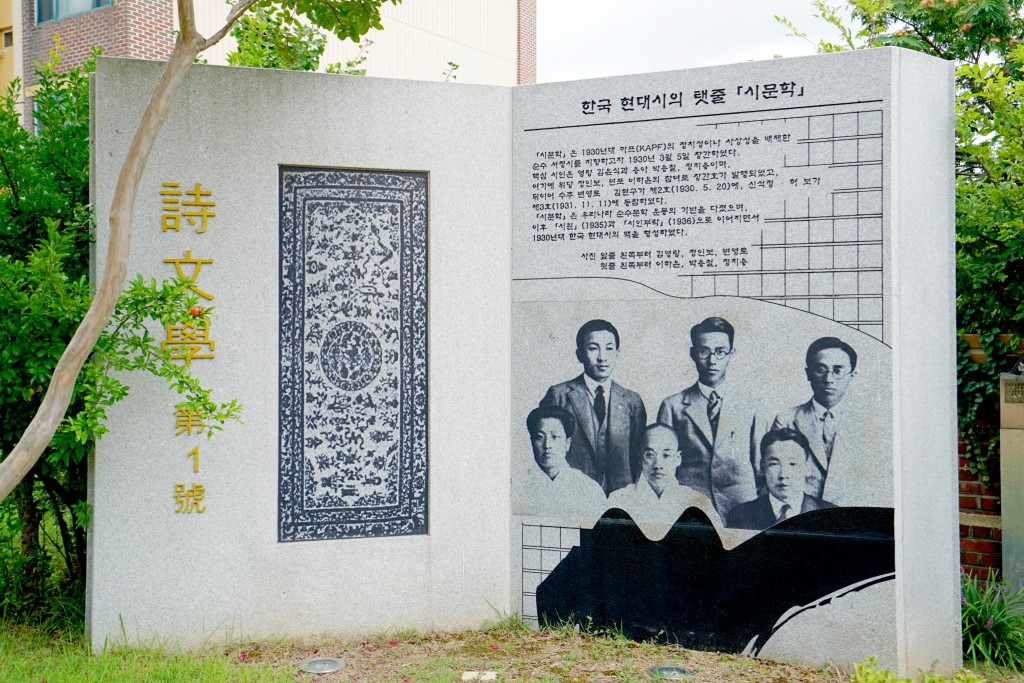 詩
文
學
第
1
號
한국 현대시의 탯줄 「시문학」
「시문학」은 1930년대 카프(KAPF)의 정치성이나 사상성을 배제한
순수 서정시를 지향하고자 1930년 3월 5일 창간하였다.
핵심 시인은 영랑 김윤식과 용아 박용철, 정지용이며,
여기에 위당 정인보, 연포 이하윤의 참여로 창간호가 발행되었고,
뒤이어 수주 변영로 · 김현구가 제2호(1930. 5. 20)에, 신석정 · 허 보가
제3호(1931. 11. 11)에 동참하였다.
「시문학」은 우리나라 순수문학 운동의 기반을 다졌으며,
이후 「시원」(1935)과 「시인부락」(1936)으로 이어지면서
1930년대 한국 현대시의 맥을 형성하였다.
사진 앞줄 왼쪽부터 김영랑, 정인보, 변영로
뒷줄 왼쪽부터 이하윤, 박용철, 정지용